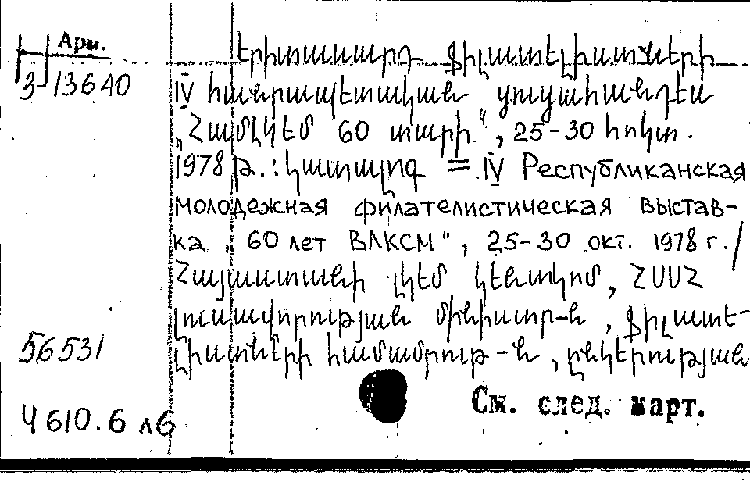 Арм.
Երիտասարդ ֆիլատելիստների
3-13640
IV հանրապետական ցուցահանդես
„Համլկեմ 60 տարի“, 25-30 հոկտ.
1978 թ.: կատալոգ = IV Республиканская
молодежная филателистическая выстав-
ка „60 лет ВЛКСМ“, 25-30 окт. 1978 г. /
Հայաստանի լկեմ կենտկոմ, ՀՍՍՀ
լուսավորության մինիստր-ն, ֆիլատե-
56531
լիստների համամիութ-ն, ընկերության
См. след. карт.
Ч 610.6 лб